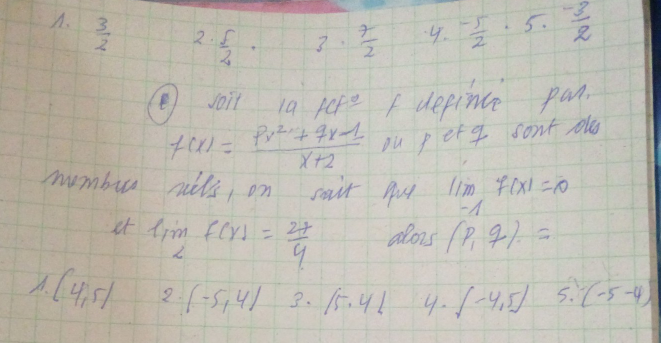 1. 3/2 2. 5/2. 3. 7/2 4. -5/2. 5. -3/2
soit la fct° f définie par.
f(x) = (px² + qx-1)/(x+2) ou p et q sont des
nombres réels, on sait que lim -1 f(x) = 0
et lim 2 f(x) = 27/4 alors (p, q). =
1. (4,5) 2. (-5,4) 3. (5.4) 4. (-4,5) 5. (-5-4)